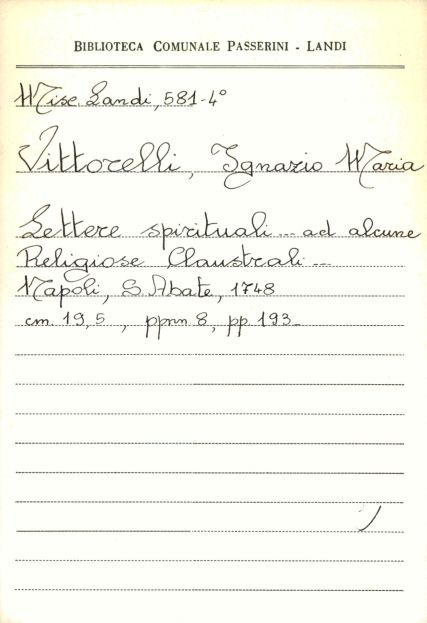 BIBLIOTECA COMUNALE PASSERINI - LANDI
Misc. Landi, 581-4°
Vittorelli, Ignazio Maria
Lettere spirituali... ad alcune
Religiose Claustrali...
Napoli, S. Abate, 1748
cm. 19,5 , ppnn 8, pp. 193.